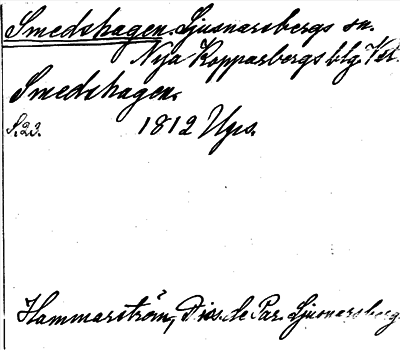 Smedshagen. Ljusnarsbergs sn.
Nya Kopparbergs blg. Vsr.
Smedshagen.
S. 23. 1812 Ups.
Hammarström, Diss. de Par. Ljusnarsberg.